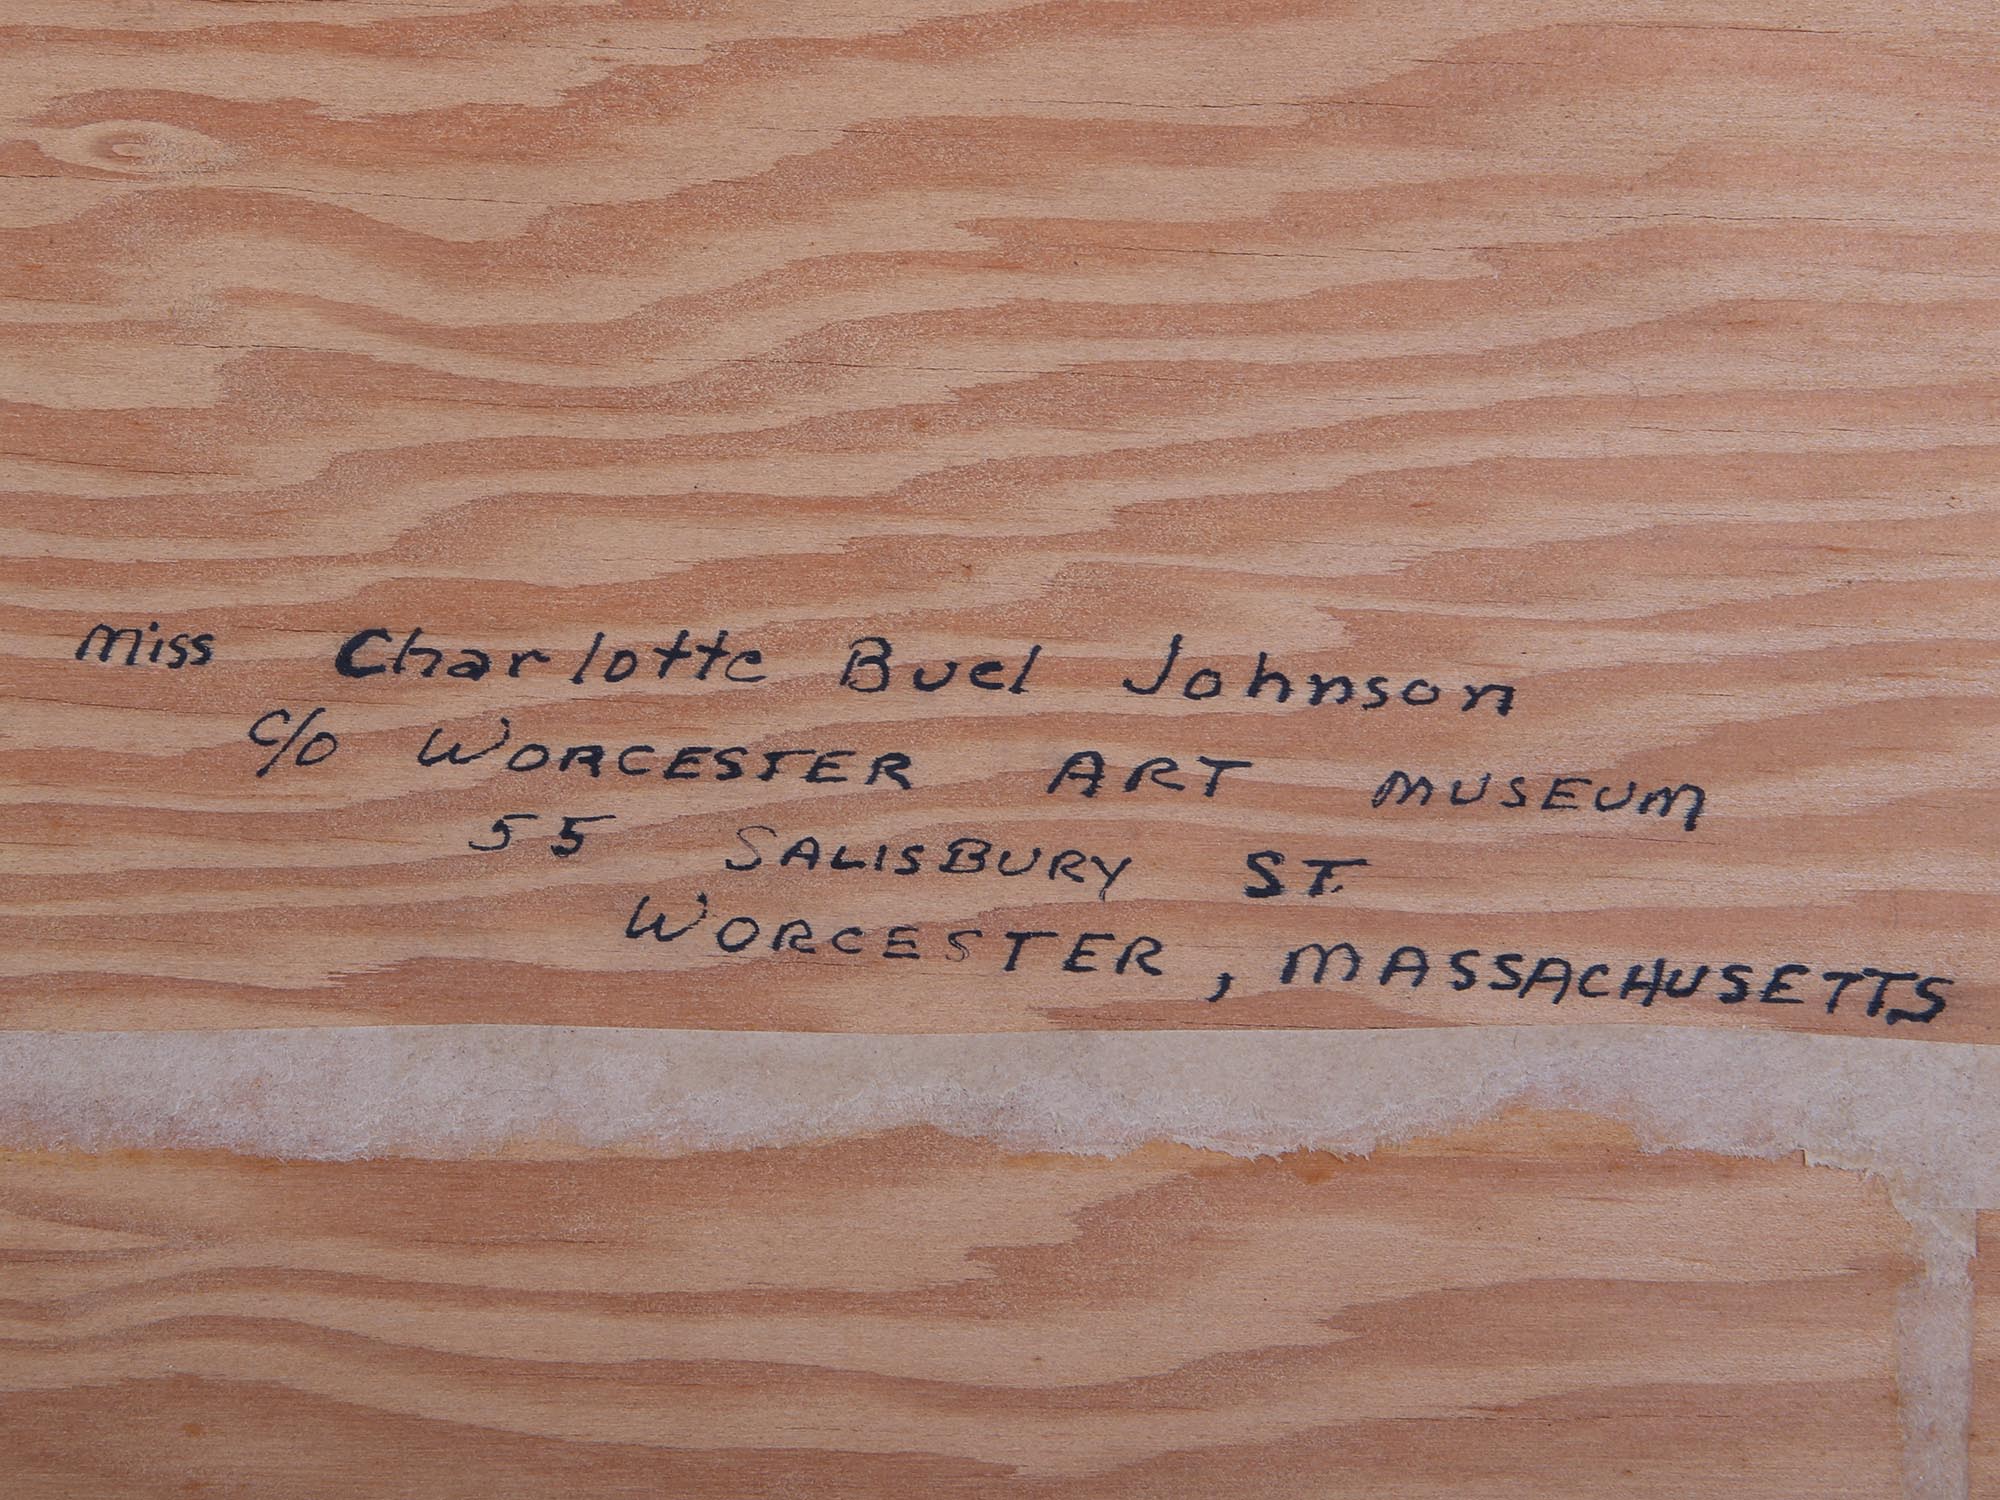 Miss Charlotte Buel Johnson
c/o WORCESTER ART MUSEUM
55 SALISBURY ST.
WORCESTER, MASSACHUSETTS